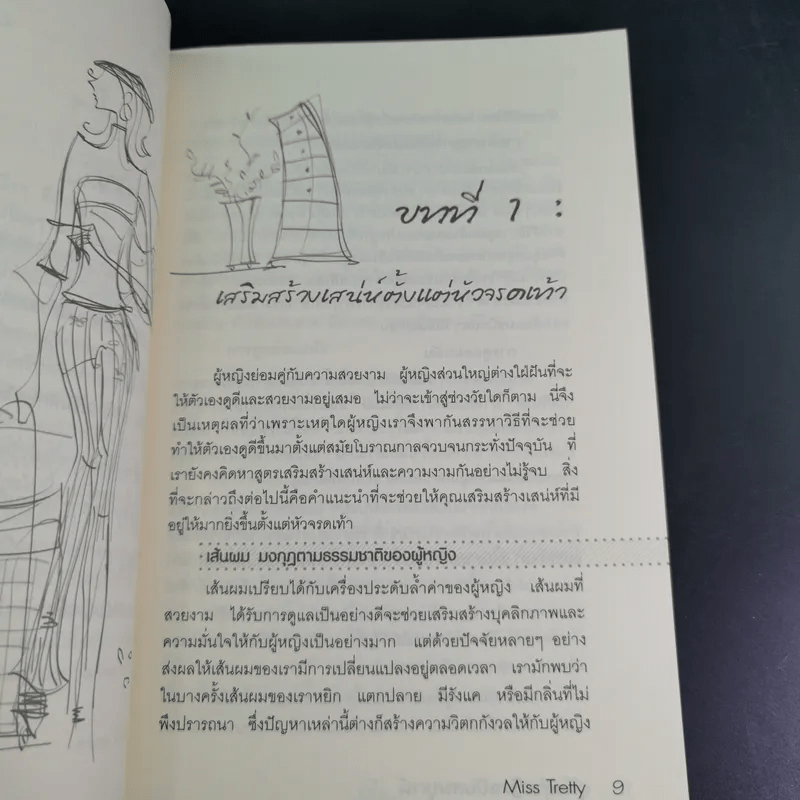 บทที่ 1 :
เสริมสร้างเสน่ห์ตั้งแต่หัวจรดเท้า
ผู้หญิงย่อมคู่กับความสวยงาม ผู้หญิงส่วนใหญ่ต่างใฝ่ฝันที่จะ
ให้ตัวเองดูดีและสวยงามอยู่เสมอ ไม่ว่าจะเข้าสู่ช่วงวัยใดก็ตาม นี่จึง
เป็นเหตุผลที่ว่าเพราะเหตุใดผู้หญิงเราจึงพากันสรรหาวิธีที่จะช่วย
ทำให้ตัวเองดูดีขึ้นมาตั้งแต่สมัยโบราณกาลจวบจนกระทั่งปัจจุบัน ที่
เรายังคงคิดหาสูตรเสริมสร้างเสน่ห์และความงามกันอย่างไม่รู้จบ สิ่ง
ที่จะกล่าวถึงต่อไปนี้คือคำแนะนำที่จะช่วยให้คุณเสริมสร้างเสน่ห์ที่มี
อยู่ให้มากยิ่งขึ้นตั้งแต่หัวจรดเท้า
· เส้นผม มงกุฎตามธรรมชาติของผู้หญิง
เส้นผมเปรียบได้กับเครื่องประดับล้ำค่าของผู้หญิง เส้นผมที่
สวยงาม ได้รับการดูแลเป็นอย่างดีจะช่วยเสริมสร้างบุคลิกภาพและ
ความมั่นใจให้กับผู้หญิงเป็นอย่างมาก แต่ด้วยปัจจัยหลายๆ อย่าง
ส่งผลให้เส้นผมของเรามีการเปลี่ยนแปลงอยู่ตลอดเวลา เรามักพบว่า
ในบางครั้งเส้นผมของเราหยิก แตกปลาย มีรังแค หรือมีกลิ่นที่ไม่
พึงปรารถนา ซึ่งปัญหาเหล่านี้ต่างก็สร้างความวิตกกังวลให้กับผู้หญิง
Miss Tretty 9